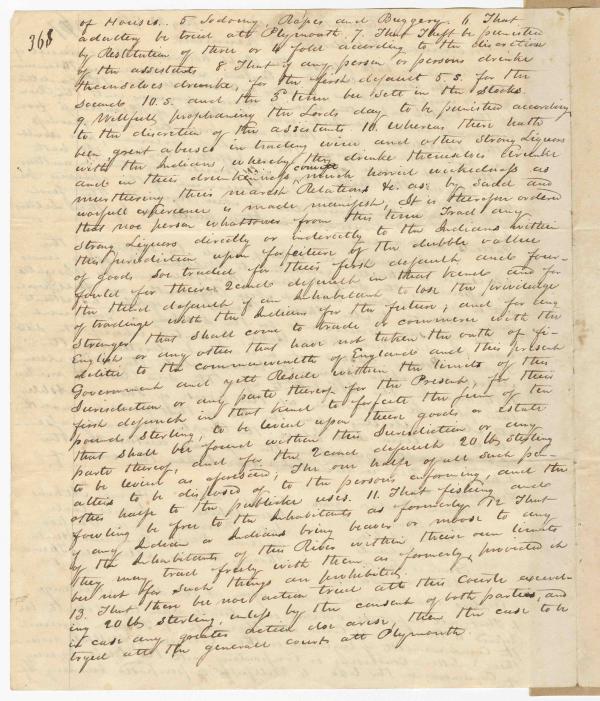 368
of Houses... 5 Sodomy, Rapes and Buggery. 6 That
adultery be tried att Plymouth. 7. That Theft be punished
by Restitution of three or 4 fold according to the discretion
of the assistants 8. That if any person or persons drinke
themselves drunke, for the first default 5.s. for the
second 10.s. and the 3d time bee sett in the stocks.
9. Willfully prophaning the Lords day to be punished according
to the discretion of the assistants. 10. whereas there hath
been great abuse in trading wine and other Strong Liquors
with the Indians, whereby they drinke themselves drunke
and in their drunkenness, commit much horred wickedness as
murthering their nearest Relations &c. as by sadd and
woefull experience is made manifest, It is therefore ordered
that noe person whatsoever from this time Trad any
Strong Liquors directly or indirectly to the Indians within
this jurisdiction upon forfeiture of the dubble vallue
of goods soe traded for theire first default and four-
fould for theire 2cond default in that kind and for
the third default if an Inhabitant to lose the priviledge
of tradinge with the Indians for the future; and for any
Stranger that shall come to trade or commerce with the
English or any other that have not taken the oath of fi-
delitie to the commonwealth of England and this present
Government and yett Reside within the limits of this
Jurisdiction or any parte thereof for the Present, for their
first default in that kind to forfeite the sum of ten
pounds sterling to be levied upon these goods or estate
that shall be found within this Jurisdiction or any
parte thereof, and for the 2cond default 20 lbs sterling
to be levied as aforesaid; The one halfe of all such pen-
alties to be disposed of to the persons enforming, and the
other halfe to the publicke uses. 11. That fishing and
fowling be free to the Inhabitants as formerly 12 That
if any Indian or Indians bring beaver or moose to any
of the Inhabitants of this River within theire own limits
they may trad freely with them as formerly, provided it
bee not for such things as are prohibited
13. That there bee noe action tried att this Courte exceed-
ing 20 lbs sterling, unless by the consent of both parties, and
in case any greater action doe arise, then the case to be
tryed att the generall courts att Plymouth